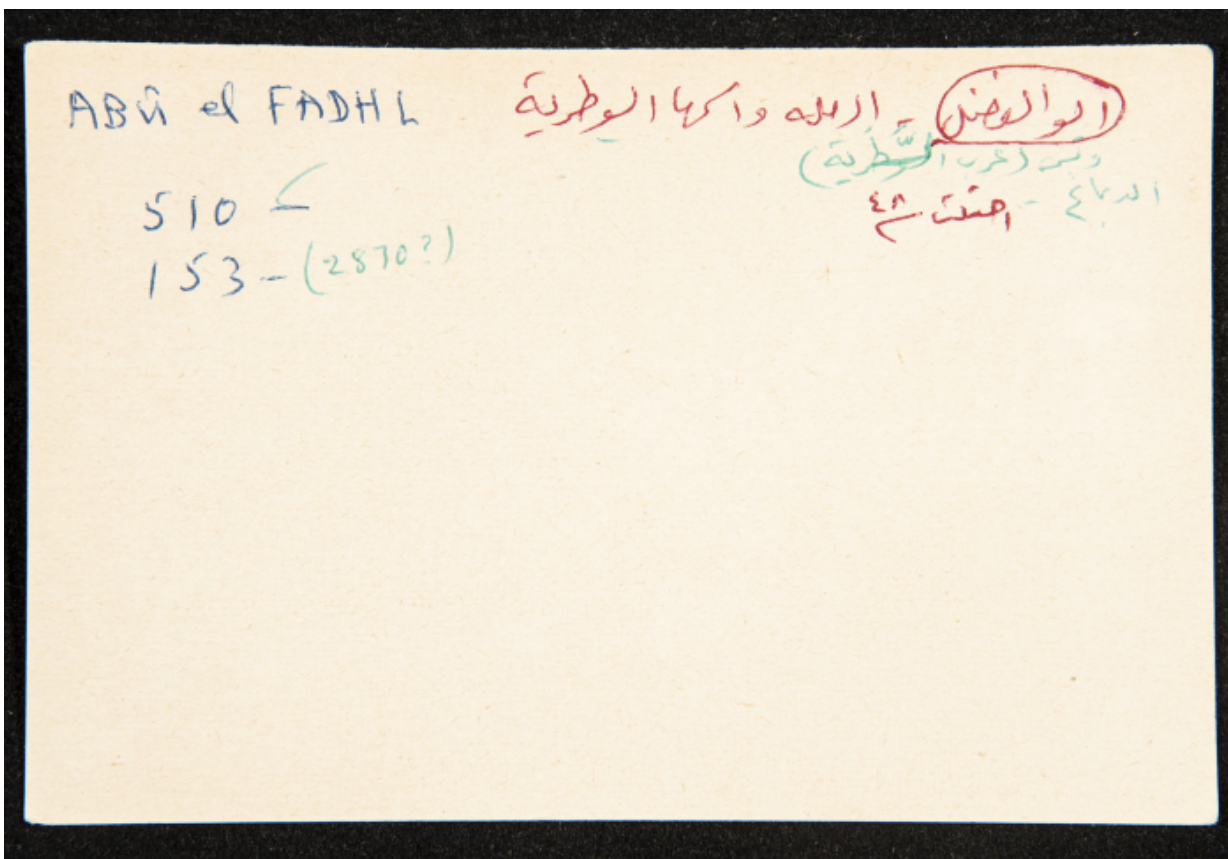 ABÛ el FADHL
ابو الفضل - الرمله واسمها السوطرية
وتسمى (عرب السُّطَرية)
الدباغ - احتلت ٤٨
510
153 - (2870?)